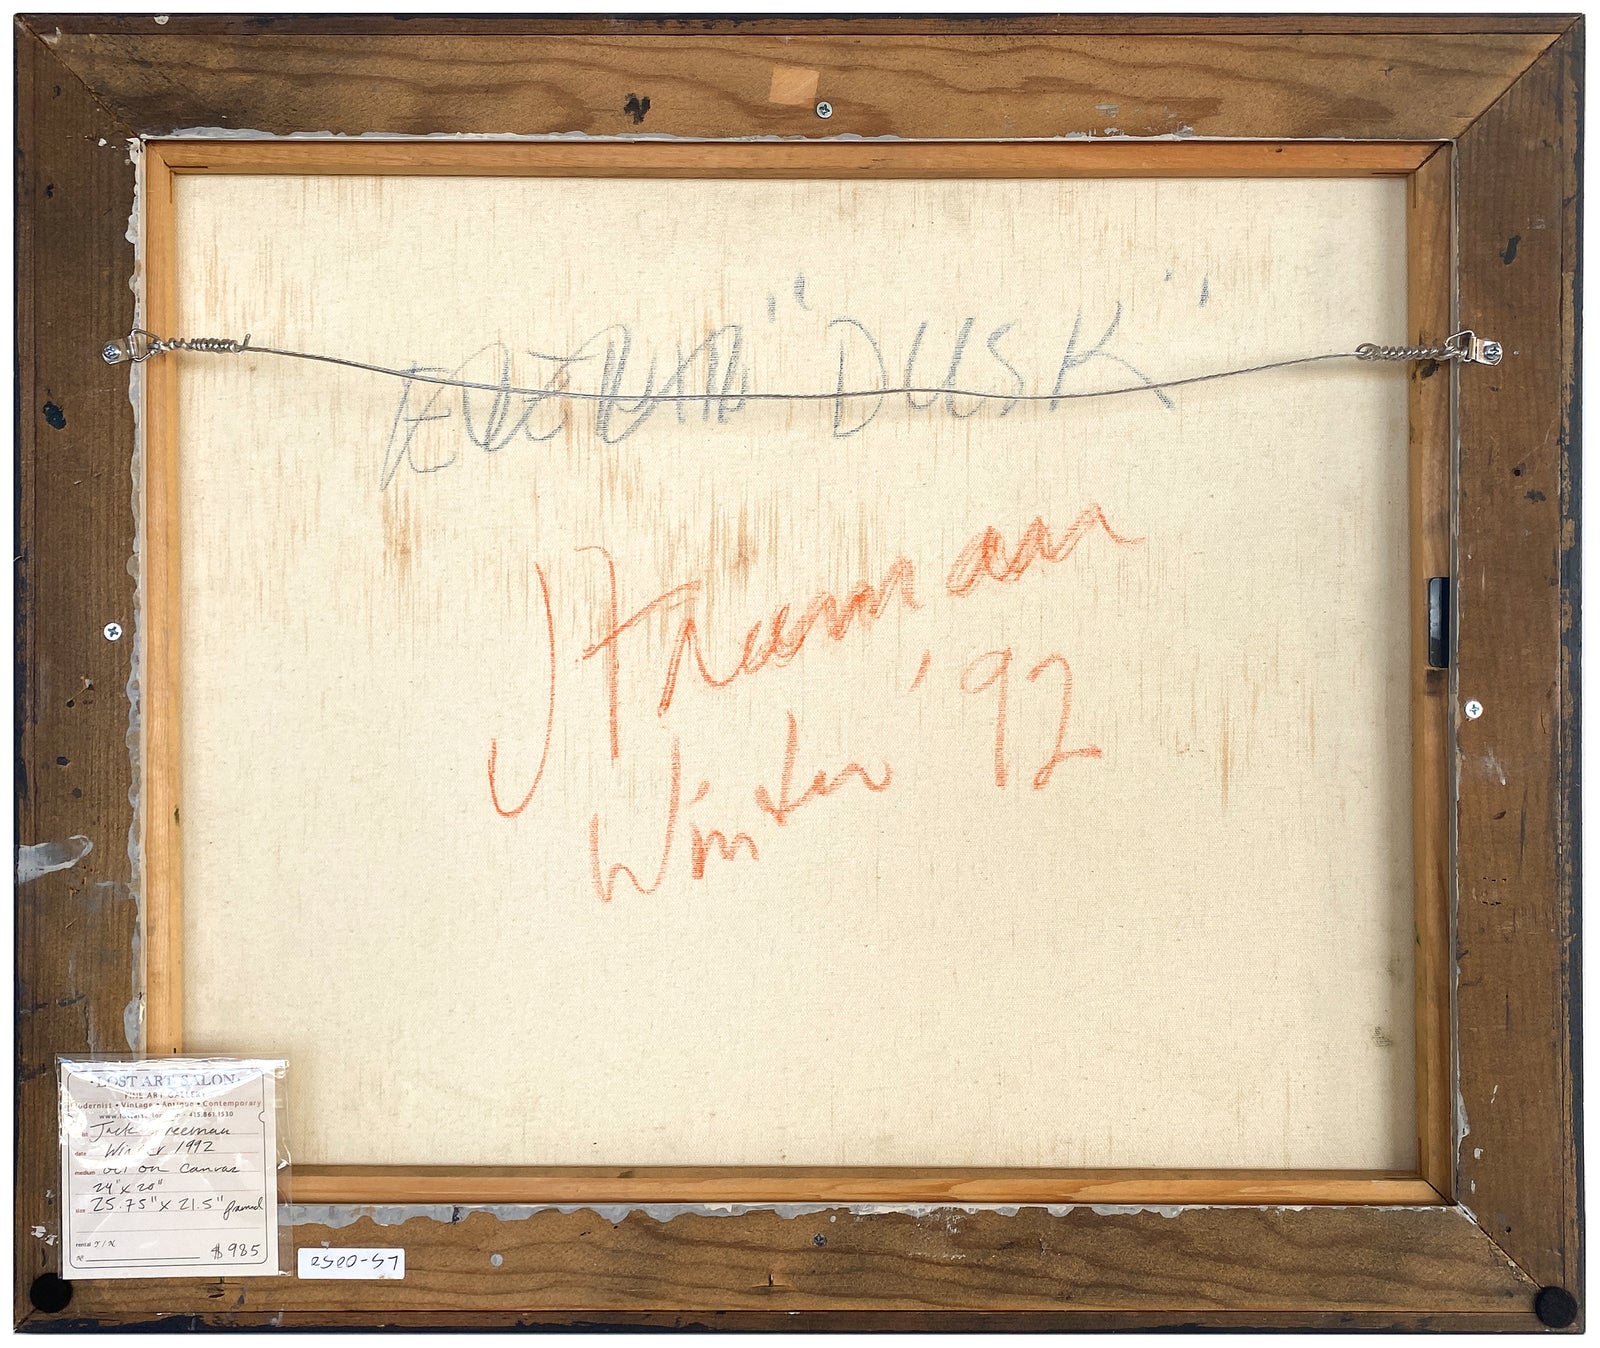 "DUSK"
J Freeman
Winter '92
·LOST ART SALON·
FINE ART GALLERY
Modernist • Vintage • Antique • Contemporary
415.861.1530
Jack Freeman
date Winter 1992
medium oil on canvas
24" x 20"
size 25.75" x 21.5" framed
rental
$985